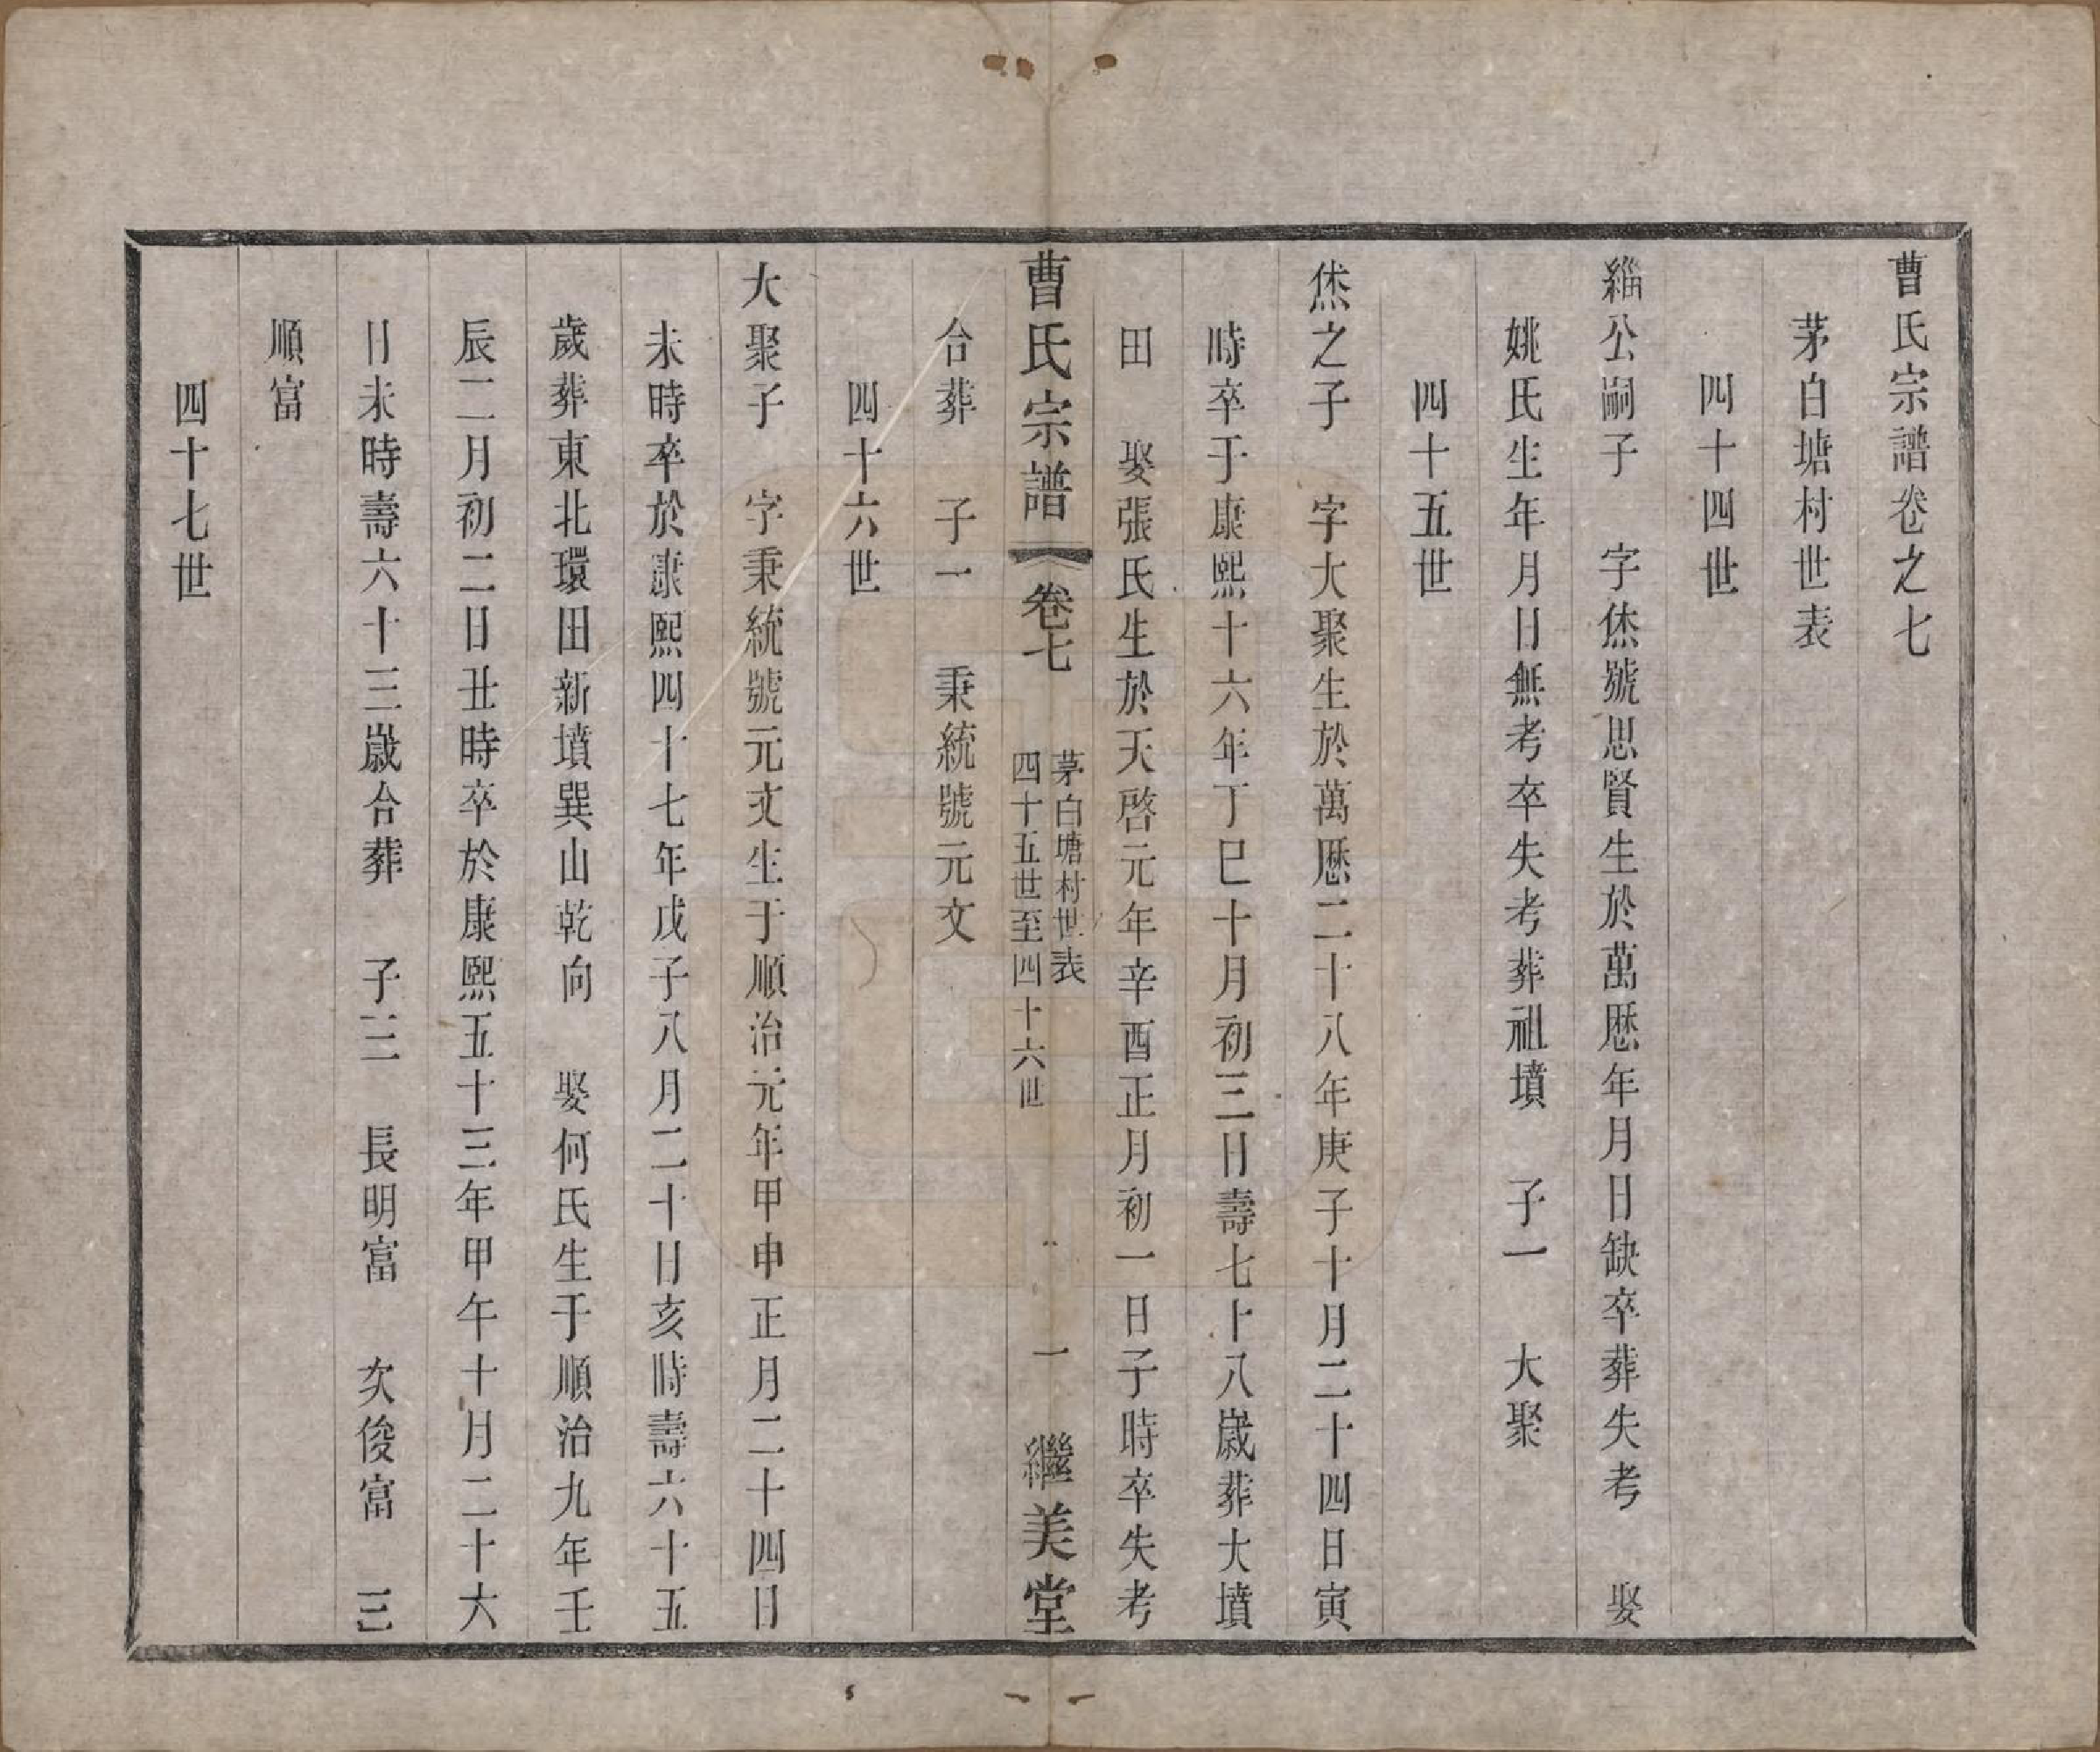 曹氏宗譜卷之七
茅白塘村世表
四十四世
緇公嗣子 字烋號思賢生於萬厯年月日缺卒葬失考 娶
姚氏生年月日無考卒失考葬祖墳 子一 大聚
四十五世
烋之子 字大聚生於萬厯二十八年庚子十月二十四日寅
時卒于康熙十六年丁巳十月初三日壽七十八歲葬大墳
田 娶張氏生於天啓元年辛酉正月初一日子時卒失考
合葬 子一 秉統號元文
曹氏宗譜 卷七 茅白塘村世表 四十五世至四十六世 一 繼美堂
四十六世
大聚子 字秉統號元文生于順治元年甲申正月二十四日
未時卒於康熙四十七年戊子八月二十日亥時壽六十五
歲葬東北環田新墳巽山乾向 娶何氏生于順治九年壬
辰二月初二日丑時卒於康熙五十三年甲午十月二十六
日未時壽六十三歲合葬 子三 長明富 次俊富 三
順富
四十七世